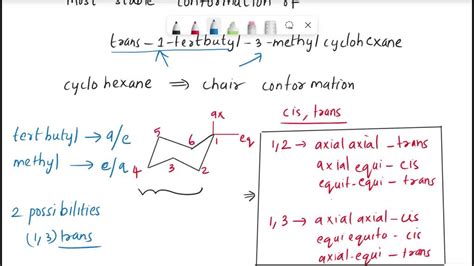 most stable conformation of
trans-1-tertbutyl-3-methylcyclohexane
cyclohexane ⟹ chair conformation
cis, trans
tertbutyl → a/e
methyl → e/a
2 possibilities
(1,3) trans
ax
eq
1
2
3
4
5
6
⟹
1,2 → axial axial - trans
axial equi - cis
equit-equi - trans
1,3 → axial axial - cis
equi equito - cis
axial-equi - trans